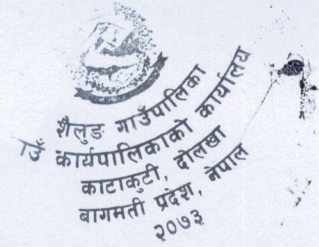 शैलुङ गाउँपालिका
गाउँ कार्यपालिकाको कार्यालय
काटाकुटी, दोलखा
बागमती प्रदेश, नेपाल
२०७३